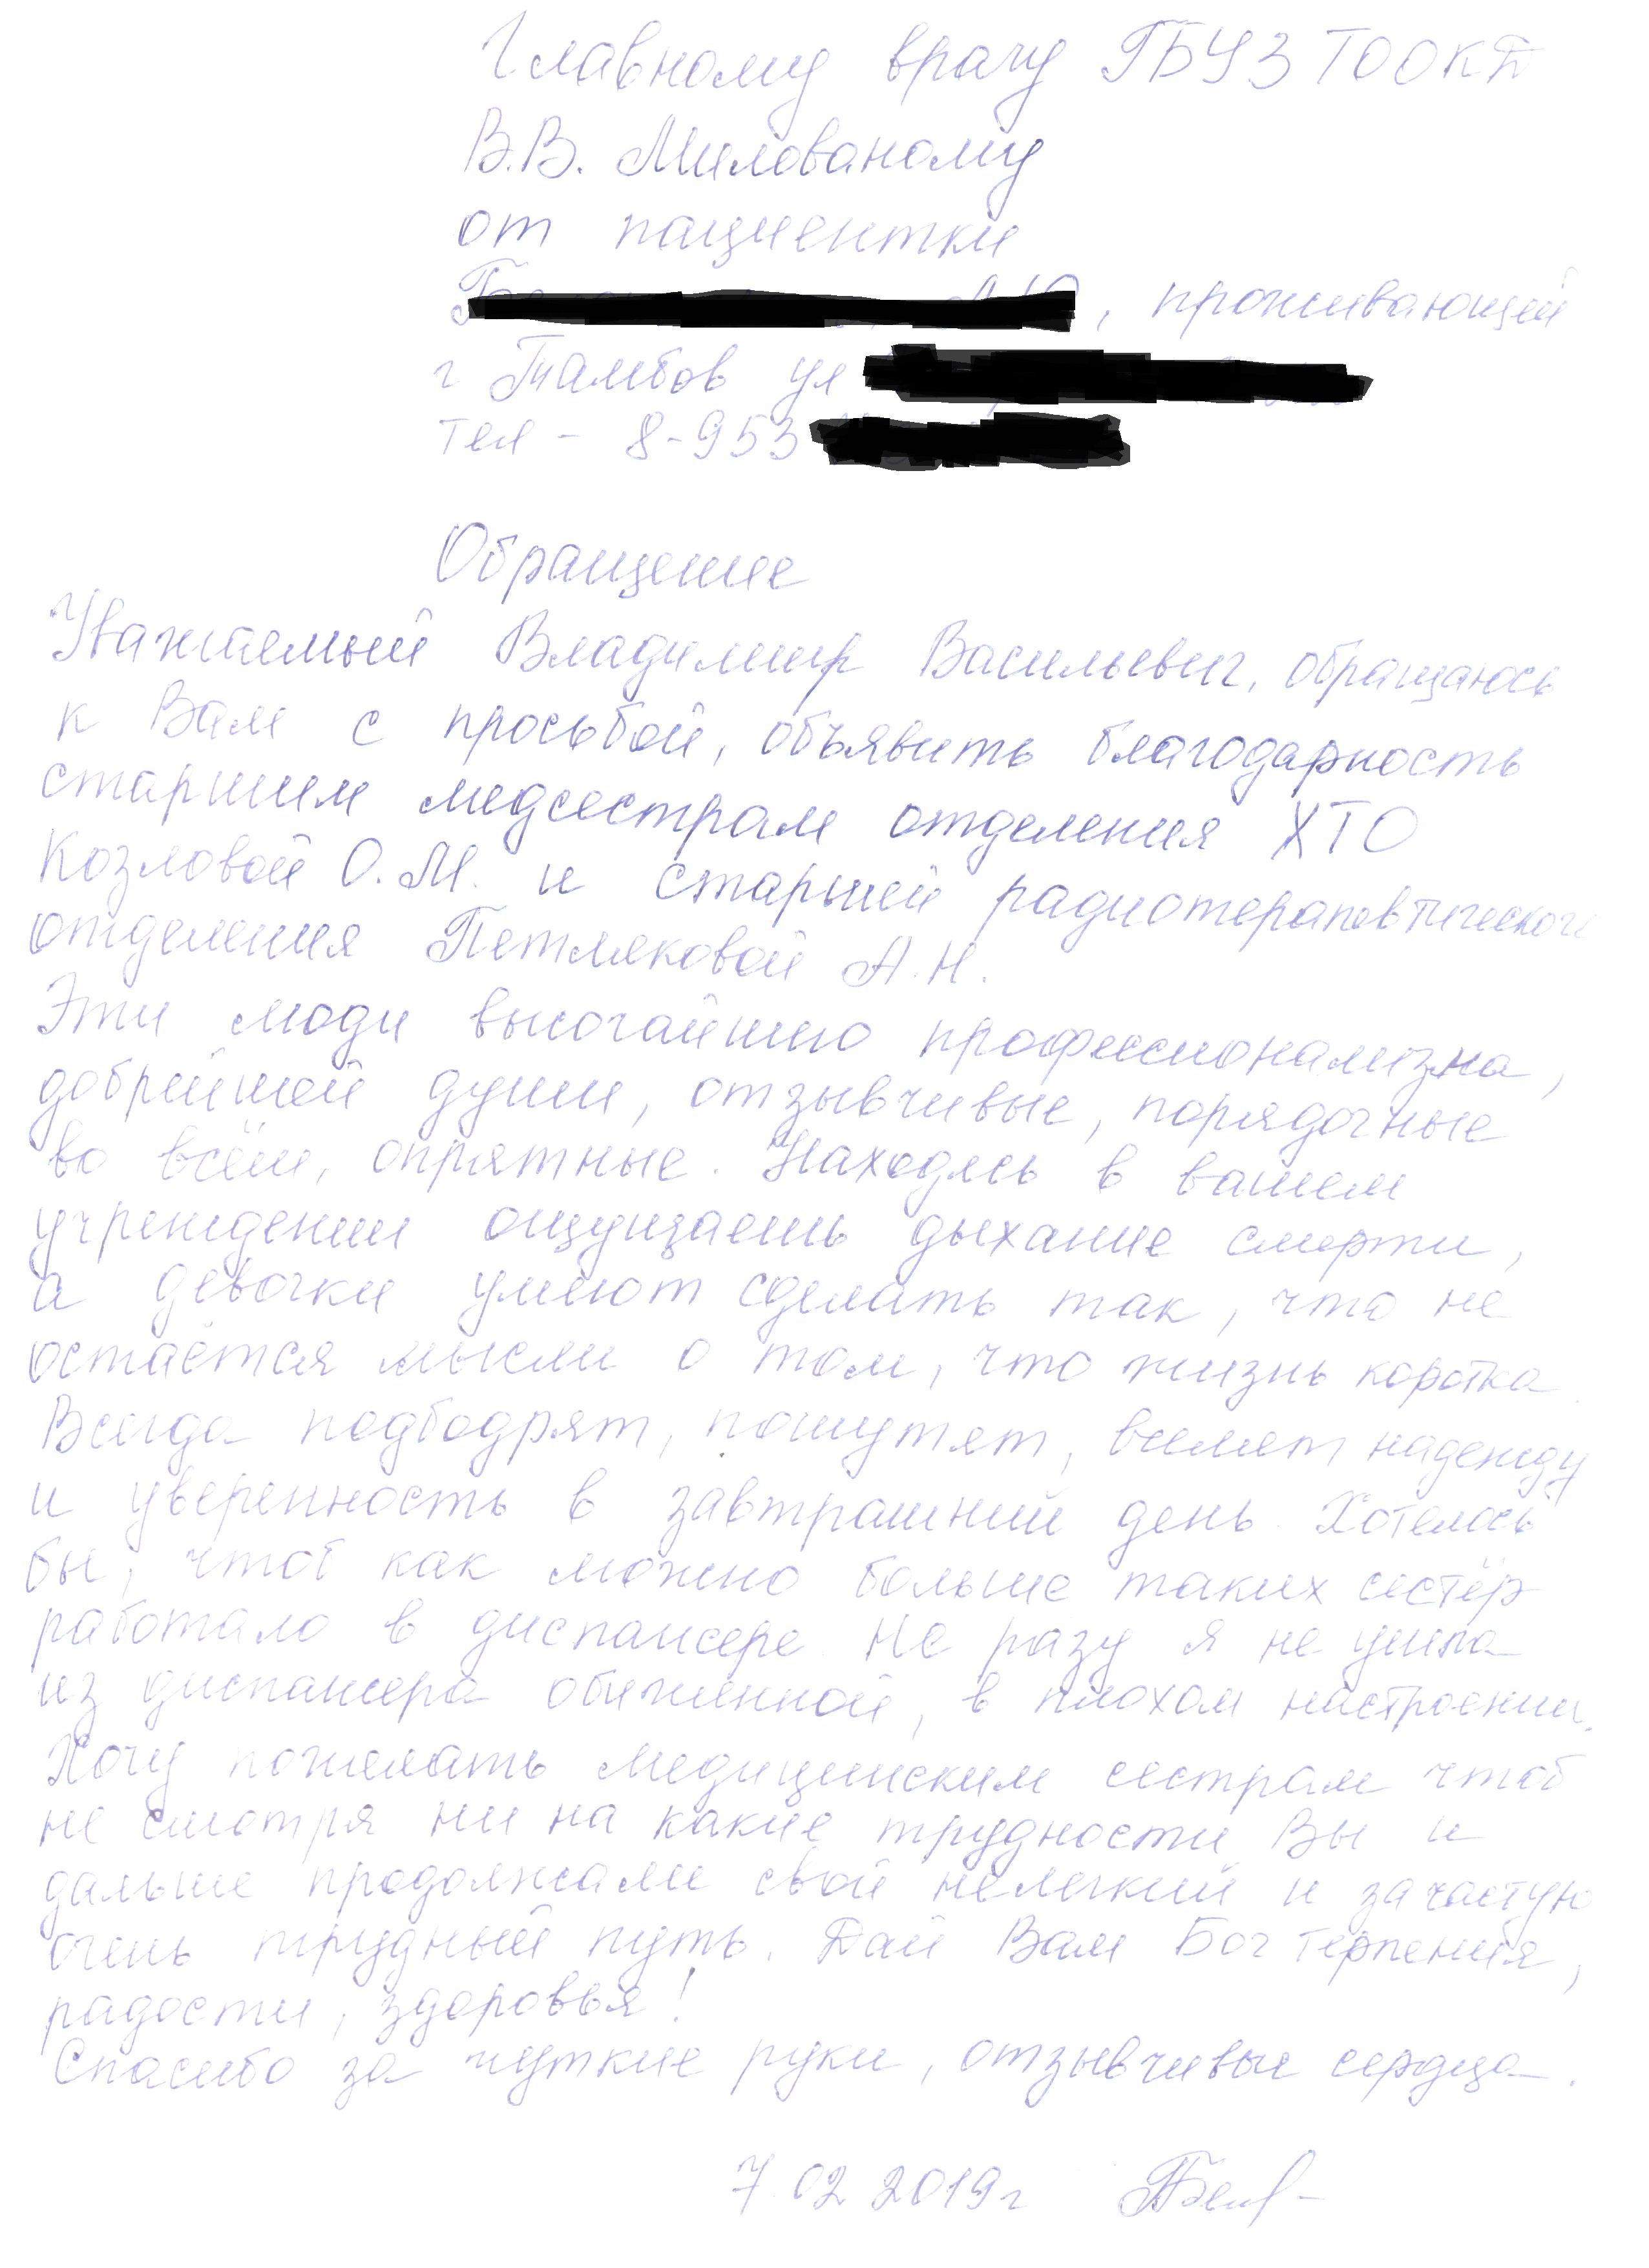 Главному врачу ГБУЗ ТООКД
В.В. Милованому
от пациентки
, проживающей
г Тамбов ул
тел - 8-953
Обращение
Уважаемый Владимир Васильевич, обращаюсь
к Вам с просьбой, объявить благодарность
старшим медсестрам отделения ХТО
Козловой О.М. и старшей радиотерапевтического
отделения Петляковой А.Н.
Эти люди высочайшего профессионализма,
добрейшей души, отзывчивые, порядочные
во всём, опрятные. Находясь в вашем
учреждении ощущаешь дыхание смерти,
а девочки умеют сделать так, что не
остаётся мысли о том, что жизнь коротка
Всегда подбодрят, пошутят, вселят надежду
и уверенность в завтрашний день. Хотелось
бы, чтоб как можно больше таких сестёр
работало в диспансере. Не разу я не ушла
из диспансера обиженной, в плохом настроении.
Хочу пожелать медицинским сестрам чтоб
не смотря ни на какие трудности Вы и
дальше продолжали свой нелегкий и зачастую
очень трудный путь. Дай Вам Бог терпения,
радости, здоровья!
Спасибо за чуткие руки, отзывчивые сердца.
7.02 2019г